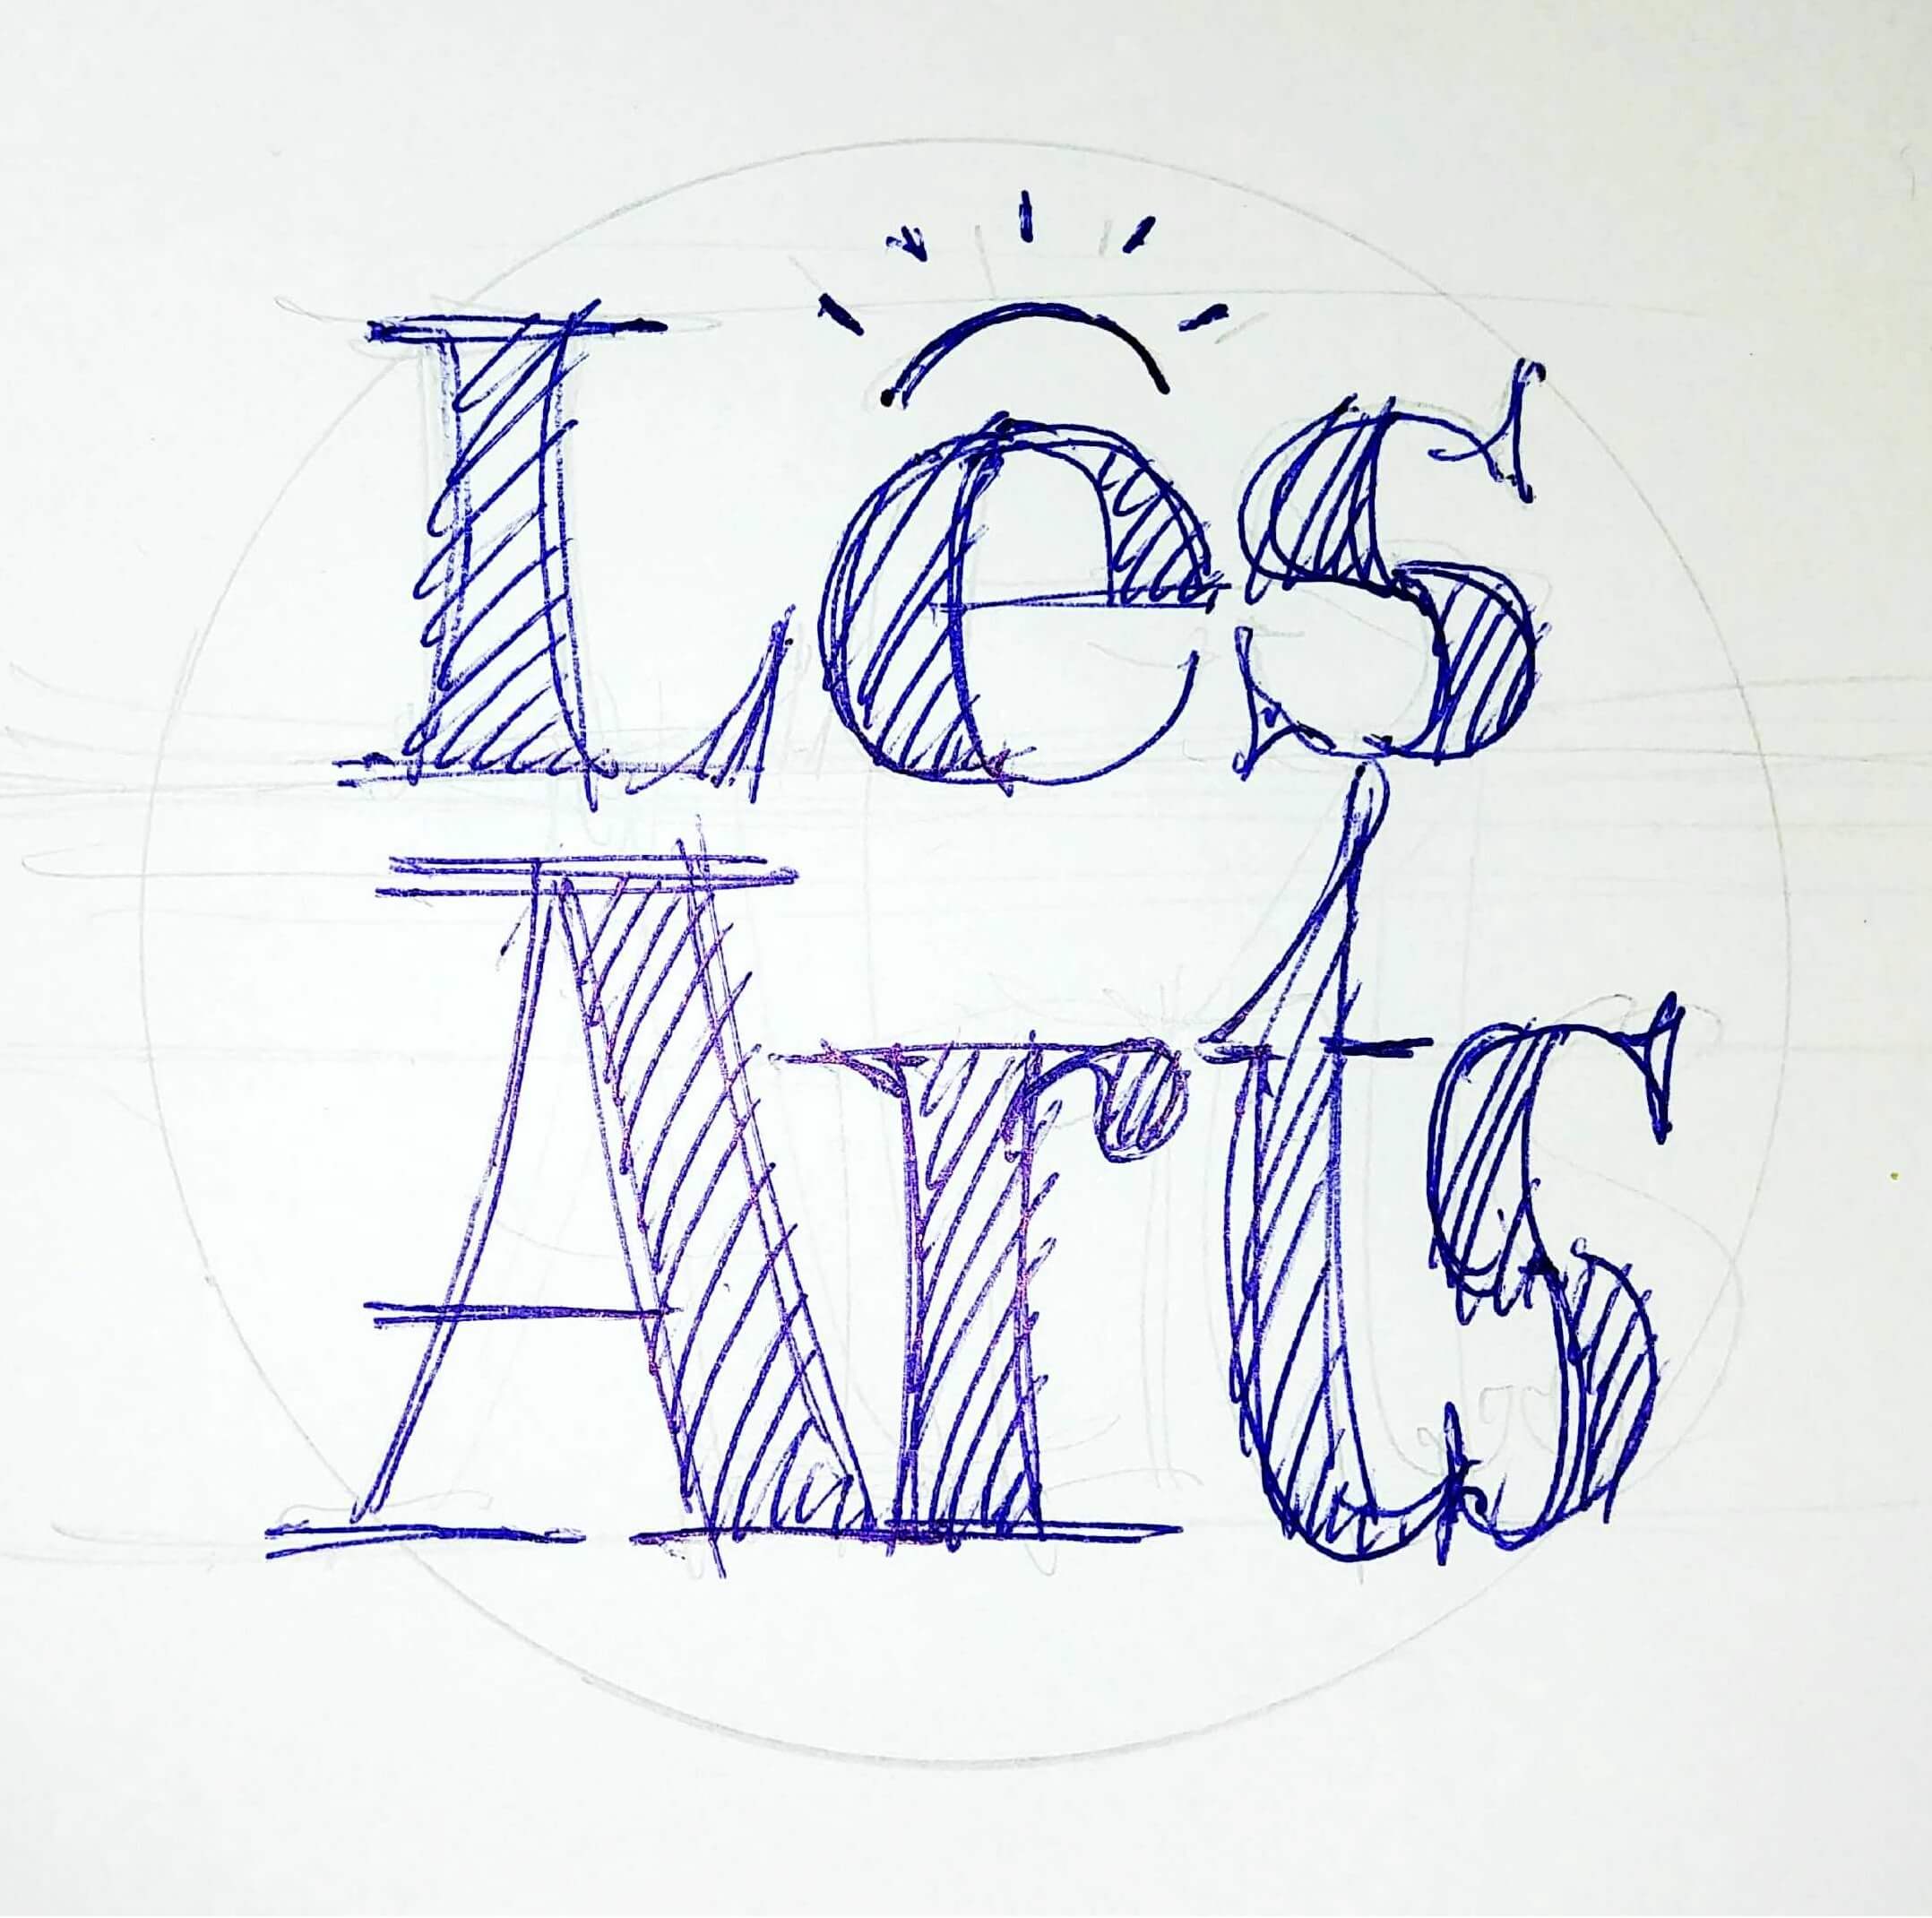 Les
Arts